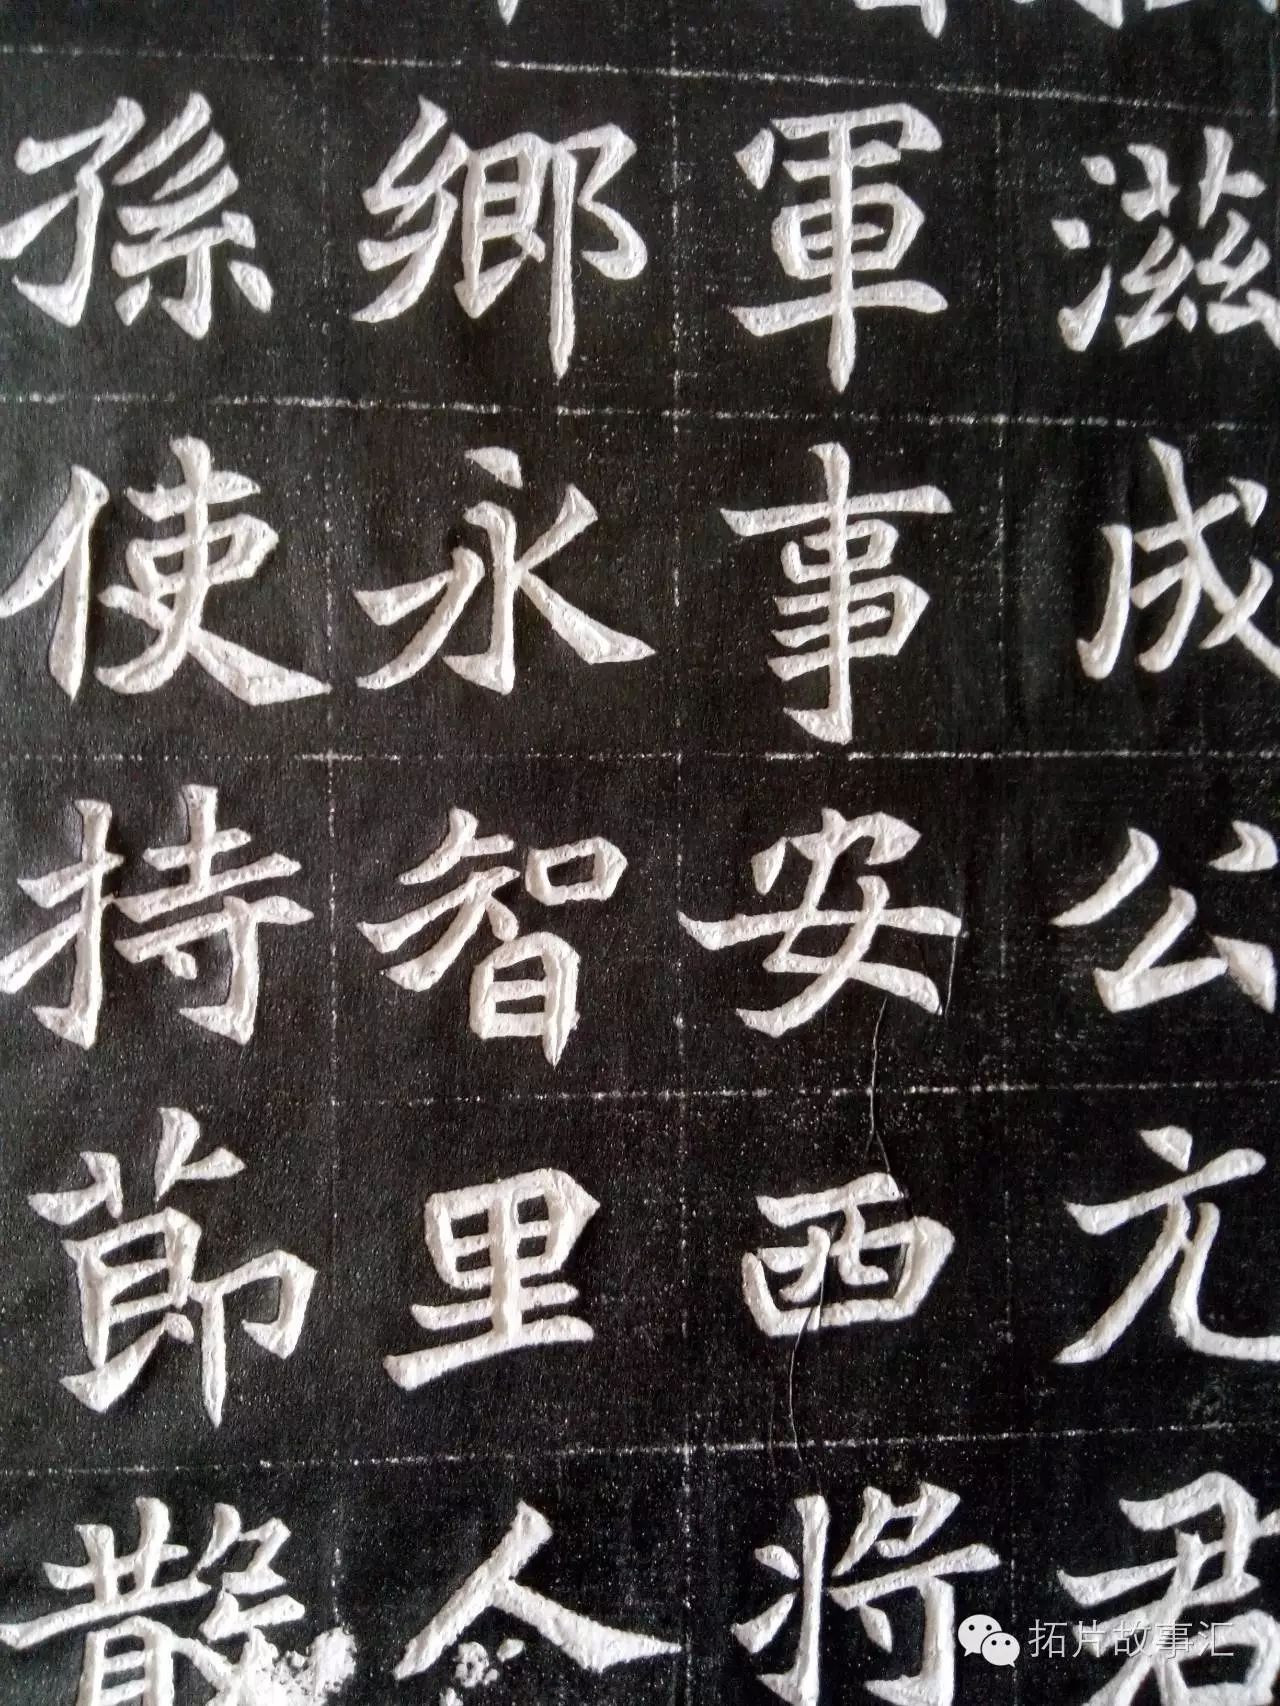 滋成公元君
軍事安西將
鄉永智里人
孫使持節散
拓片故事汇